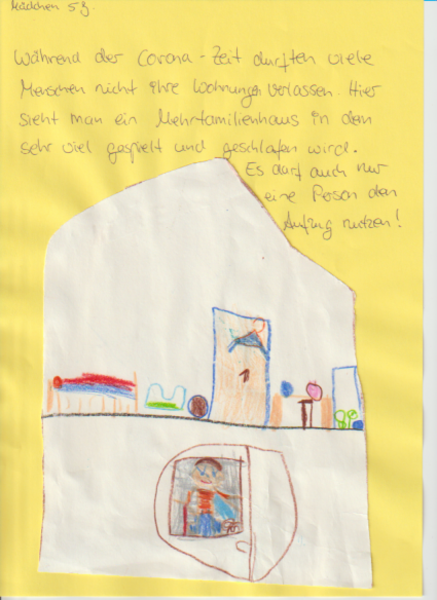 Mädchen 5 J
Während der Corona-Zeit durften viele
Menschen nicht ihre Wohnungen verlassen. Hier
sieht man ein Mehrfamilienhaus in dem
sehr viel gespielt und geschlafen wird.
Es darf auch nur
eine Person den
Aufzug nutzen!